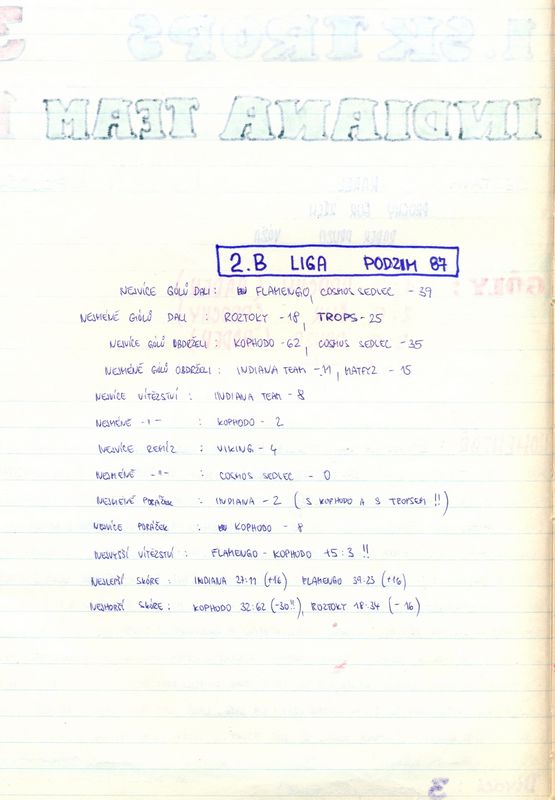 2.B LIGA PODZIM 87
NEJVÍCE GÓLŮ DALI : FLAMENGO, COSMOS SEDLEC - 39
NEJMÉNĚ GÓLŮ DALI : ROZTOKY - 18, TROPS - 25
NEJVÍCE GÓLŮ OBDRŽELI : KOPHODO - 62, COSMOS SEDLEC - 35
NEJMÉNĚ GÓLŮ OBDRŽELI : INDIANA TEAM - 11, MATFYZ - 15
NEJVÍCE VÍTĚZSTVÍ : INDIANA TEAM - 8
NEJMÉNĚ -"- : KOPHODO - 2
NEJVÍCE REMÍZ : VIKING - 4
NEJMÉNĚ -"- : COSMOS SEDLEC - 0
NEJMÉNĚ PORÁŽEK : INDIANA - 2 (S KOPHODO A S TROPSEM !!)
NEJVÍCE PORÁŽEK : KOPHODO - 8
NEJVYŠŠÍ VÍTĚZSTVÍ : FLAMENGO - KOPHODO 15:3 !!
NEJLEPŠÍ SKÓRE : INDIANA 27:11 (+16) FLAMENGO 39:23 (+16)
NEJHORŠÍ SKÓRE : KOPHODO 32:62 (-30!!), ROZTOKY 18:34 (-16)